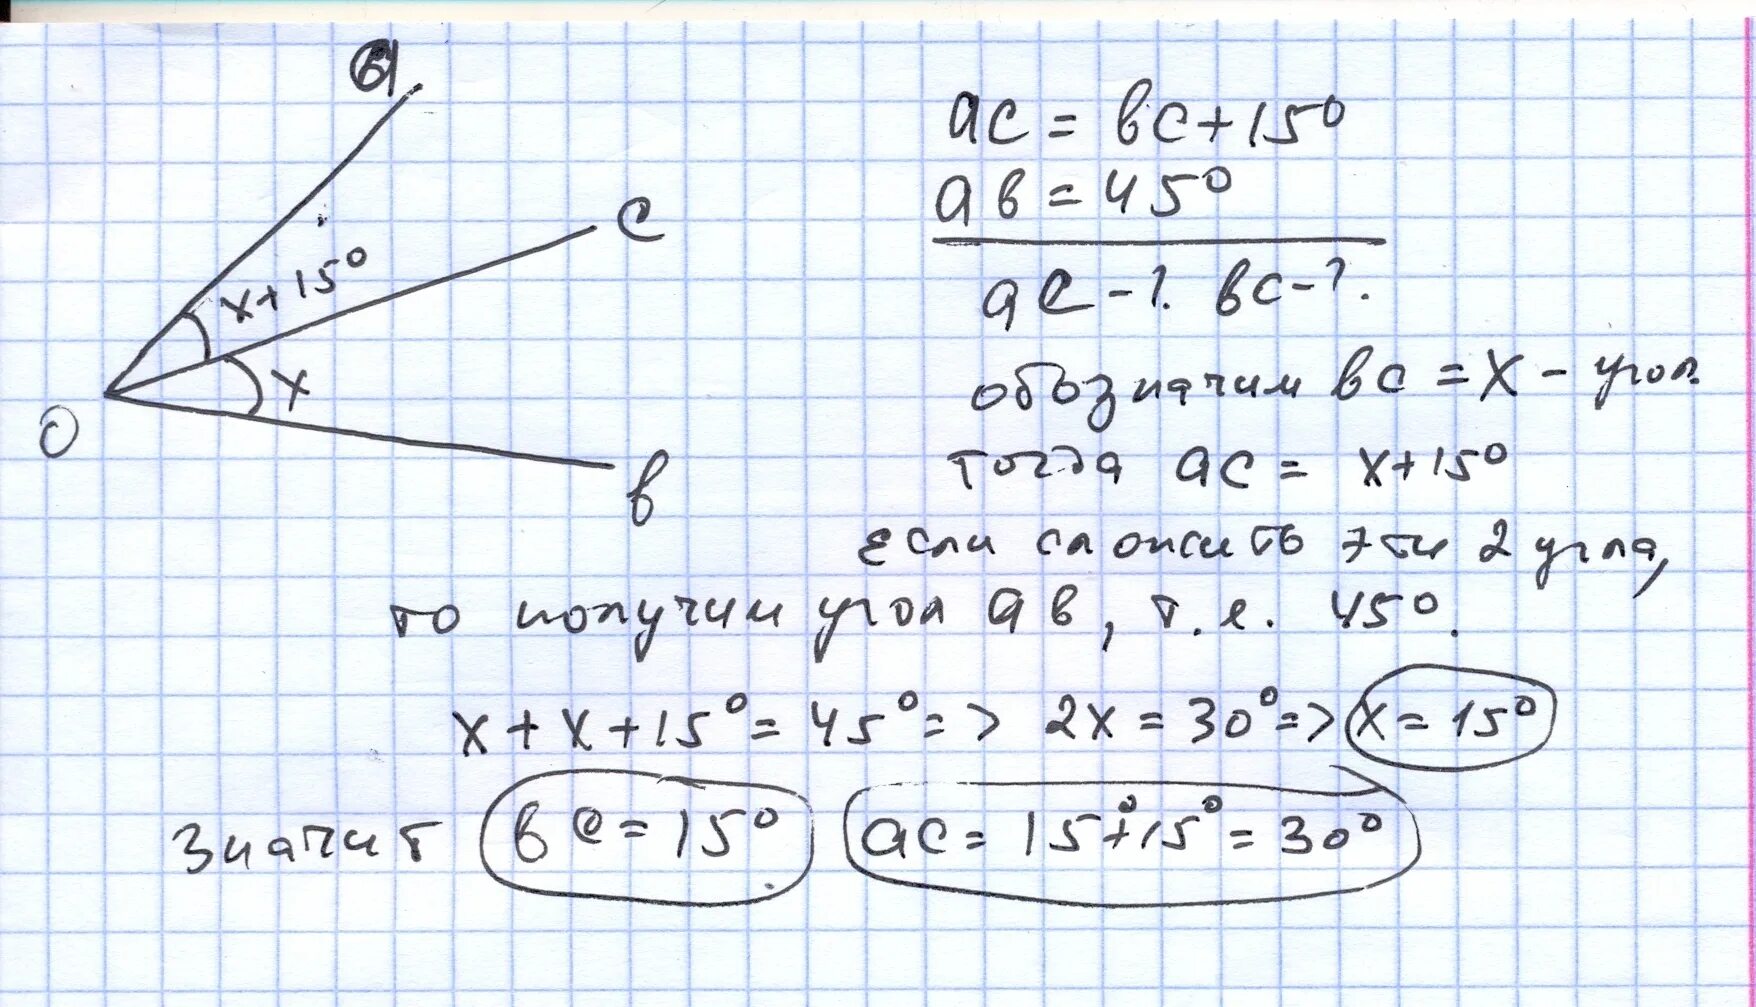 a
c
x+15°
x
O
b
ac = bc+15°
ab = 45°
ac-? bc-?
обозначим bc = x - угол
тогда ac = x+15°
если сложить эти 2 угла,
то получим угол ab, т.е. 45°.
x + x + 15° = 45° => 2x = 30° => x = 15°
значит bc = 15° ac = 15°+15° = 30°